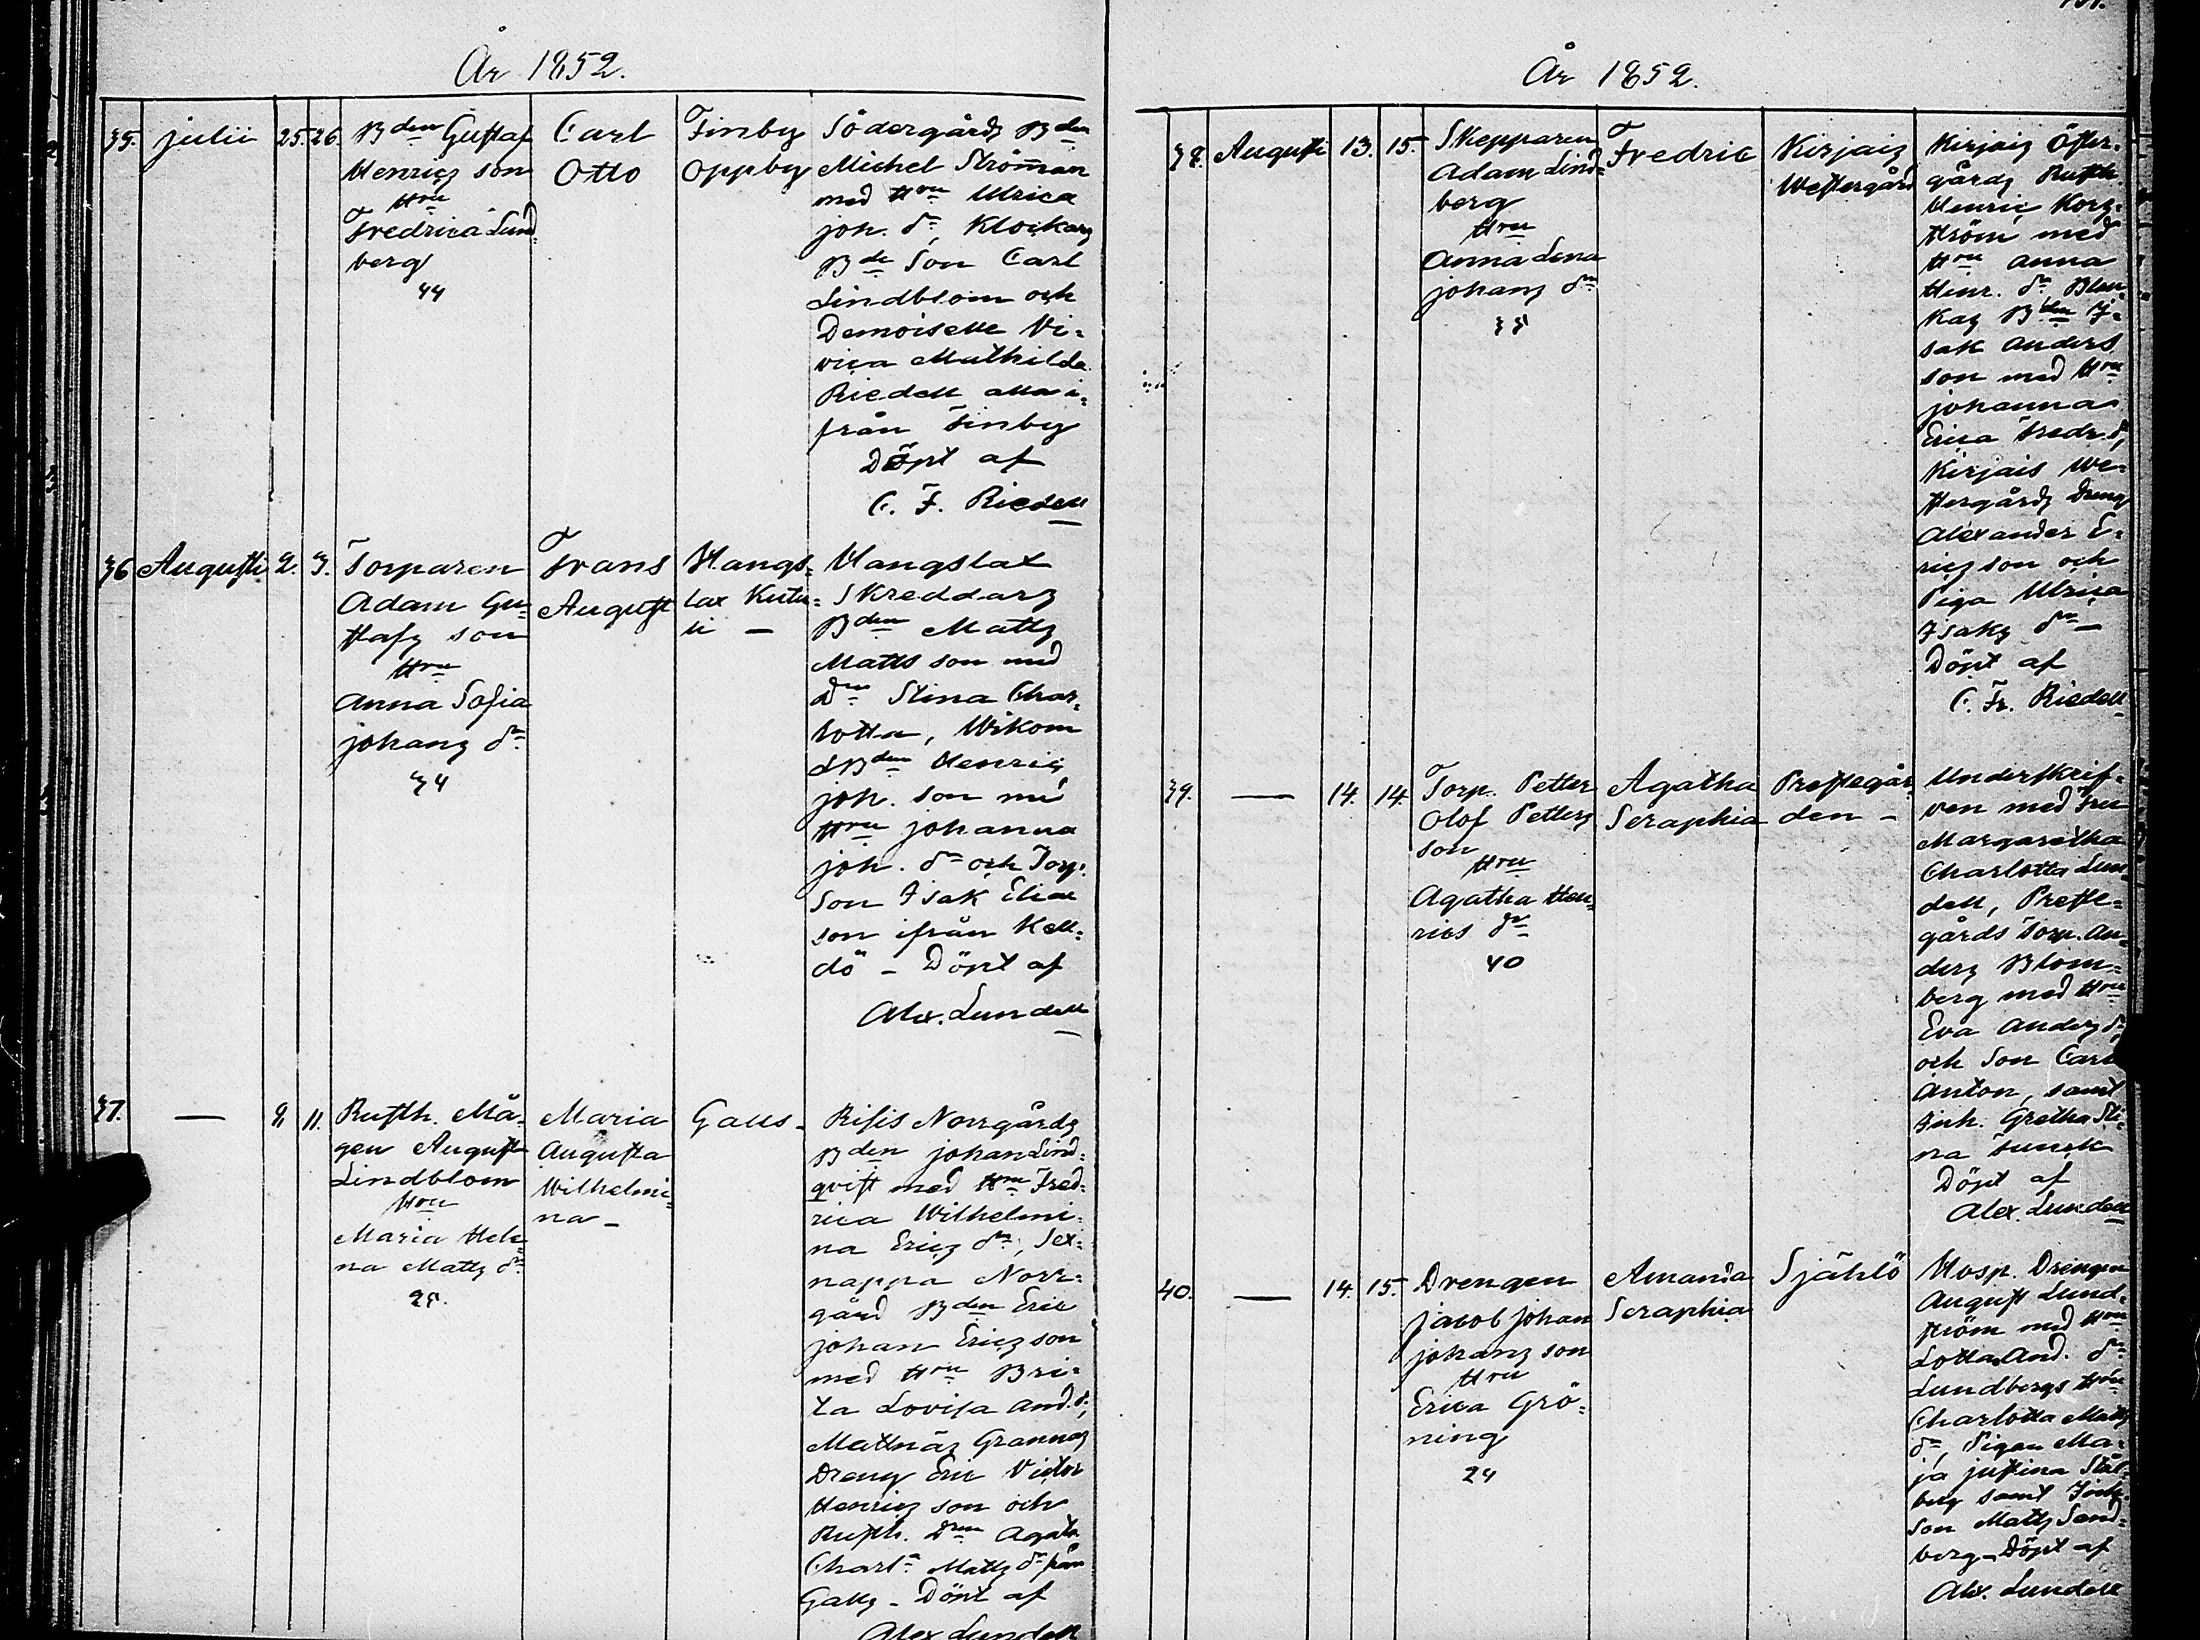 År 1852.
35. julii 25. 26.
Bden Gustaf
Henrics son
Hru
Fredrica Lund=
berg
44
Carl
Otto
Finby
Oppby
Södergårds Bden
Michel Ströman
med Hru Ulrica
joh. dr, Klockars
Bde Son Carl
Lindblom och
Demoiselle Vi=
vica Mathilda
Riedell alla i=
från Finby
Döpt af
C. F. Riedell
36 Augusti 2. 3.
Torparen
Adam Gu=
stafs son
Hru
Anna Sofia
johans dr
34
Frans
August
Hangs=
lax Kutu=
li —
Hangslax
Skreddars
Bden Matts
Matts son med
Dr Stina Char=
lotta, Wikom
Bden Henric
joh. son med
Hru johanna
joh. dr och Torp.
Son Isak Elias
son ifrån Kell=
dö – Döpt af
Alex. Lundell
37. — 9. 11.
Rusth. Må=
gen August
Lindblom
Hru
Maria Hele=
na Matts dr
25.
Maria
Augusta
Wilhelmi=
na –
Galls –
Risis Norrgårds
Bden johan Lind=
qvist med Hru Fred=
rica Wilhelmi=
na Erics dr, Sex=
nappa Norr=
gård Bden Eric
johan Erics son
med Hru Bri=
ta Lovisa And. dr,
Mattnäs Grannas
Dreng Eric Victor
Henrics son och
Rusth. Drn Agata
Charla Matts dr från
Galls – Döpt af
Alex Lundell
År 1852.
38. Augusti 13. 15.
Skepparen
Adam Lind=
berg
Hru
Anna Lena
johans dr
35
Fredric
Kirjais
Westergård
Kirjais Öster=
gårds Rusth.
Henric Korg=
ström med
Hru Anna
Henr. dr
kas Bden I=
sak Anders
son med Hru
johanna
Erica Fredr. dr,
Kirjais We=
stergårds Dreng
Alexander E=
rics son och
Piga Ulrica
Isaks dr –
Döpt af
C. Fr. Riedell
39. — 14. 14.
Torp. Petter
Olof Petters
son
Hru
Agatha Hen=
rics dr
40
Agatha
Seraphia
Prestegår=
den –
Underskrif=
ven med Fru
Margaretha
Charlotta Lun=
dell, Preste=
gårds Torp. An=
ders Blom=
berg med Hru
Eva Anders dr
och Son Carl
Anton, samt
Inh. Gretha Sti=
na Funck
Döpt af
Alex. Lundell
40. — 14. 15.
Drengen
jacob johan
johans son
Hru
Erica Grö=
ning
24
Amanda
Seraphia
Själö
Hosp. Drengen
August Lund=
ström med Hru
Lotta And. dr
Lundbergs Hru
Charlotta Matts
dr, Pigan Ma=
ja justina Stål=
berg samt
Son Matts Sand=
berg – Döpt af
Alex. Lundell